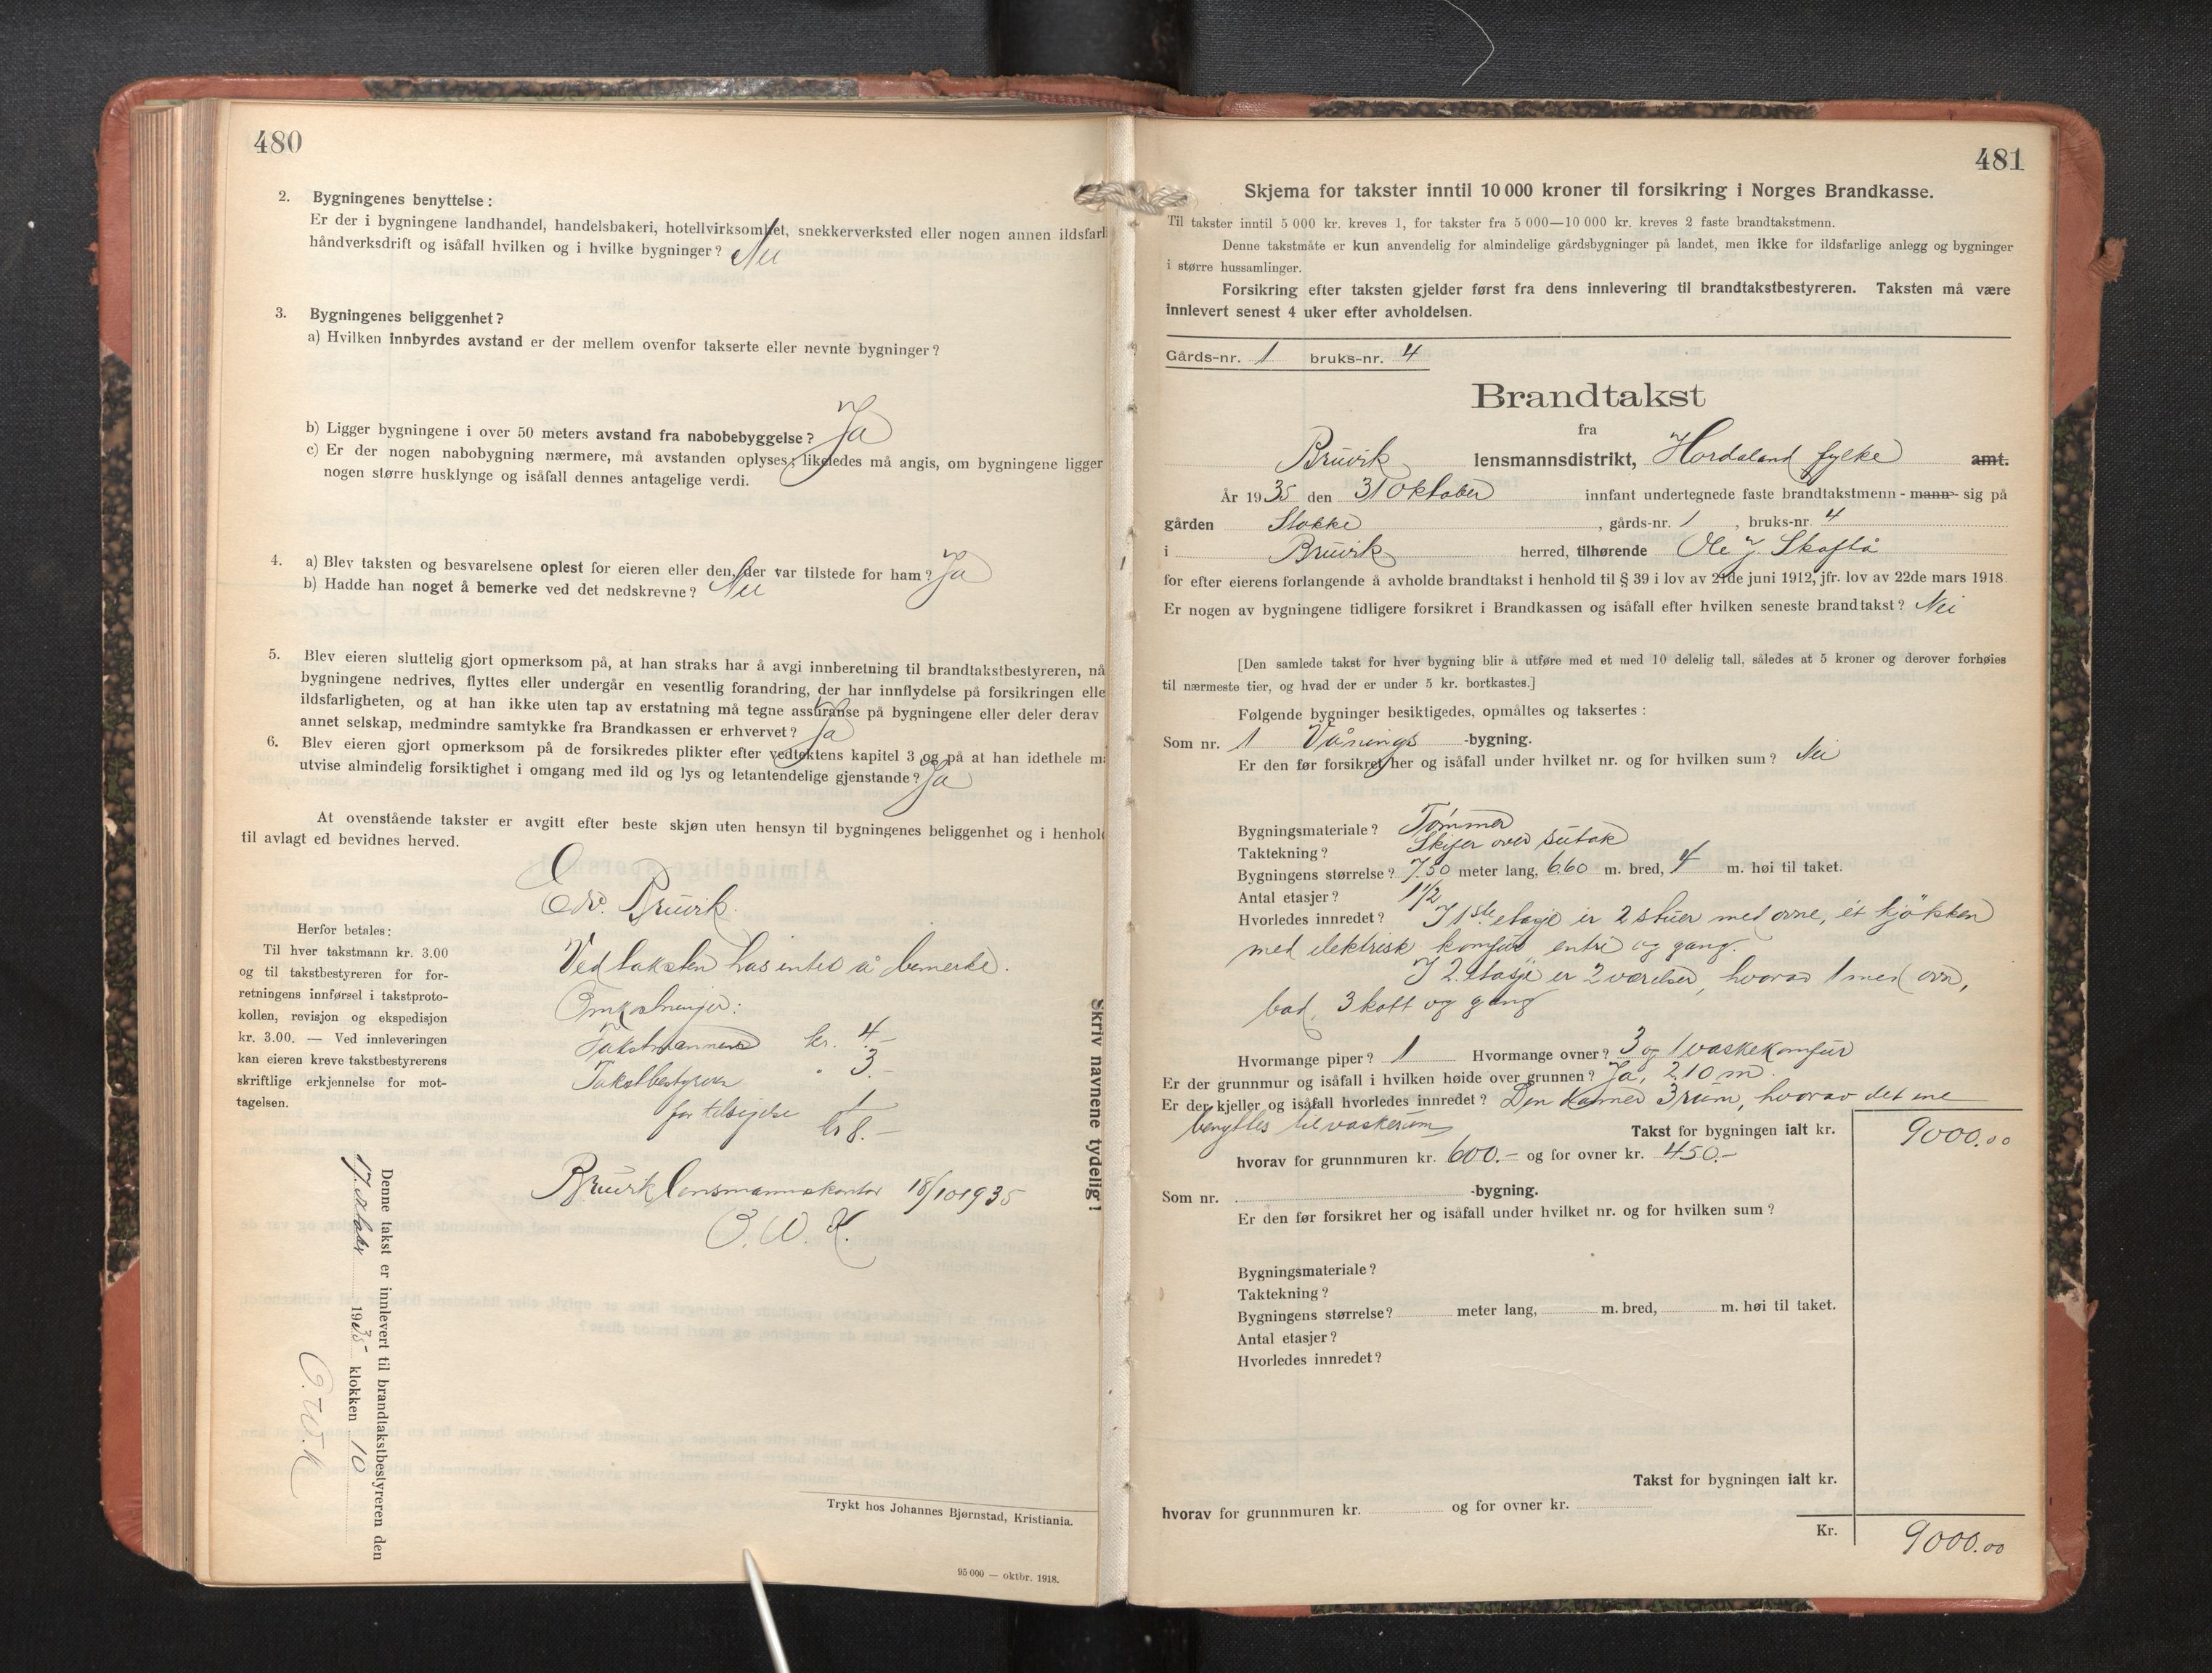 480
2. Bygningenes benyttelse:
Er der i bygningene landhandel, handelsbakeri, hotellvirksomhet, snekkerverksted eller nogen annen ildsfarli
håndverksdrift og isåfall hvilken og i hvilke bygninger? Nei
3. Bygningenes beliggenhet?
a) Hvilken innbyrdes avstand er der mellem ovenfor takserte eller nevnte bygninger?
b) Ligger bygningene i over 50 meters avstand fra nabobebyggelse? Ja
c) Er der nogen nabobygning nærmere, må avstanden oplyses; likeledes må angis, om bygningene ligger
nogen større husklynge og isåfall dennes antagelige verdi.
4. a) Blev taksten og besvarelsene oplest for eieren eller den, der var tilstede for ham? Ja
b) Hadde han noget å bemerke ved det nedskrevne? Nei
5. Blev eieren sluttelig gjort opmerksom på, at han straks har å avgi innberetning til brandtakstbestyreren, nå
bygningene nedrives, flyttes eller undergår en vesentlig forandring, der har innflydelse på forsikringen elle
ildsfarligheten, og at han ikke uten tap av erstatning må tegne assuranse på bygningene eller deler derav
annet selskap, medmindre samtykke fra Brandkassen er erhvervet? Ja
6. Blev eieren gjort opmerksom på de forsikredes plikter efter vedtektens kapitel 3 og på at han idethele må
utvise almindelig forsiktighet i omgang med ild og lys og letantendelige gjenstande? Ja
At ovenstående takster er avgitt efter beste skjøn uten hensyn til bygningenes beliggenhet og i henhold
til avlagt ed bevidnes herved.
Edv. Bruvik.
Herfor betales:
Til hver takstmann kr. 3.00
og til takstbestyreren for for-
retningens innførsel i takstproto-
kollen, revisjon og ekspedisjon
kr. 3.00. — Ved innleveringen
kan eieren kreve takstbestyrerens
skriftlige erkjennelse for mot-
tagelsen.
Ved taksten has intet å bemerke.
Omkostninger:
Takstmannen kr. 4.-
Takstbestyreren " 3.-
for tilsigelse 1
kr 8.-
Bruvik lensmannskontor 18/10 1935
O. W. K.
Denne takst er innlevert til brandtakstbestyreren den
17. oktober 1935 klokken 10
O. W. K
Skriv navnene tydelig!
Trykt hos Johannes Bjørnstad, Kristiania.
95 000 — oktbr. 1918.
481
Skjema for takster inntil 10 000 kroner til forsikring i Norges Brandkasse.
Til takster inntil 5 000 kr. kreves 1, for takster fra 5 000—10 000 kr. kreves 2 faste brandtakstmenn.
Denne takstmåte er kun anvendelig for almindelige gårdsbygninger på landet, men ikke for ildsfarlige anlegg og bygninger
i større hussamlinger.
Forsikring efter taksten gjelder først fra dens innlevering til brandtakstbestyreren. Taksten må være
innlevert senest 4 uker efter avholdelsen.
Gårds-nr. 1 bruks-nr. 4
Brandtakst
fra
Bruvik lensmannsdistrikt, Hordaland fylke amt.
År 1935 den 31 oktober innfant undertegnede faste brandtakstmenn - mann - sig på
gården Stokke, gårds-nr. 1, bruks-nr. 4
i Bruvik herred, tilhørende Ole J. Skaftå
for efter eierens forlangende å avholde brandtakst i henhold til § 39 i lov av 21de juni 1912, jfr. lov av 22de mars 1918.
Er nogen av bygningene tidligere forsikret i Brandkassen og isåfall efter hvilken seneste brandtakst? Nei
[Den samlede takst for hver bygning blir å utføre med et med 10 delelig tall, således at 5 kroner og derover forhøies
til nærmeste tier, og hvad der er under 5 kr. bortkastes.]
Følgende bygninger besiktigedes, opmåltes og taksertes:
Som nr. 1 Vånings -bygning.
Er den før forsikret her og isåfall under hvilket nr. og for hvilken sum? Nei
Bygningsmateriale? Tømmer
Taktekning? Skifer over sutak
Bygningens størrelse? 7.50 meter lang, 6.60 m. bred, 4 m. høi til taket.
Antal etasjer? 1 1/2
Hvorledes innredet? I 1ste etasje er 2 stuer med ovne, ét kjøkken
med elektrisk komfur entré og gang.
I 2. etasje er 2 værelser, hvorav 1 med ovn,
bad, 3 kott og gang
Hvormange piper? 1 Hvormange ovner? 3 og 1 vaskekomfur
Er der grunnmur og isåfall i hvilken høide over grunnen? Ja, 2.10 m.
Er der kjeller og isåfall hvorledes innredet? Den danner 3 rum, hvorav det ene
benyttes til vaskerum
Takst for bygningen ialt kr. 9000.00
hvorav for grunnmuren kr. 600.- og for ovner kr. 450.-
Som nr. -bygning.
Er den før forsikret her og isåfall under hvilket nr. og for hvilken sum?
Bygningsmateriale?
Taktekning?
Bygningens størrelse? meter lang, m. bred, m. høi til taket.
Antal etasjer?
Hvorledes innredet?
Takst for bygningen ialt kr.
hvorav for grunnmuren kr. og for ovner kr.
Kr. 9000.00